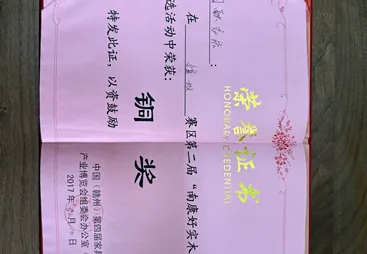 荣誉证书
HONORARY CREDENTIAL
:
在 赛区第二届“南康好实木
选活动中荣获:
铜奖
特发此证,以资鼓励
中国(赣州)第四届家具
产业博览会组委会办公室(
2017年 月 日